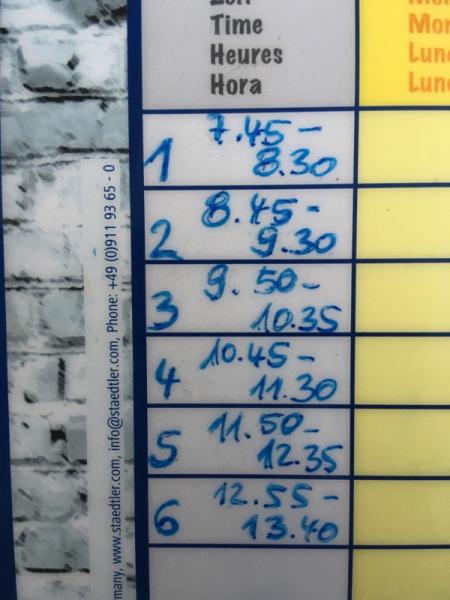 Time
Heures
Hora
1 7.45 –
8.30
2 8.45 -
9.30
3 9. 50 -
10.35
4 10.45 –
11.30
5 11.50 -
12.35
6 12.55 -
13.40
many, www.staedtler.com, info@staedtler.com, Phone: +49 (0)911 93 65 - 0